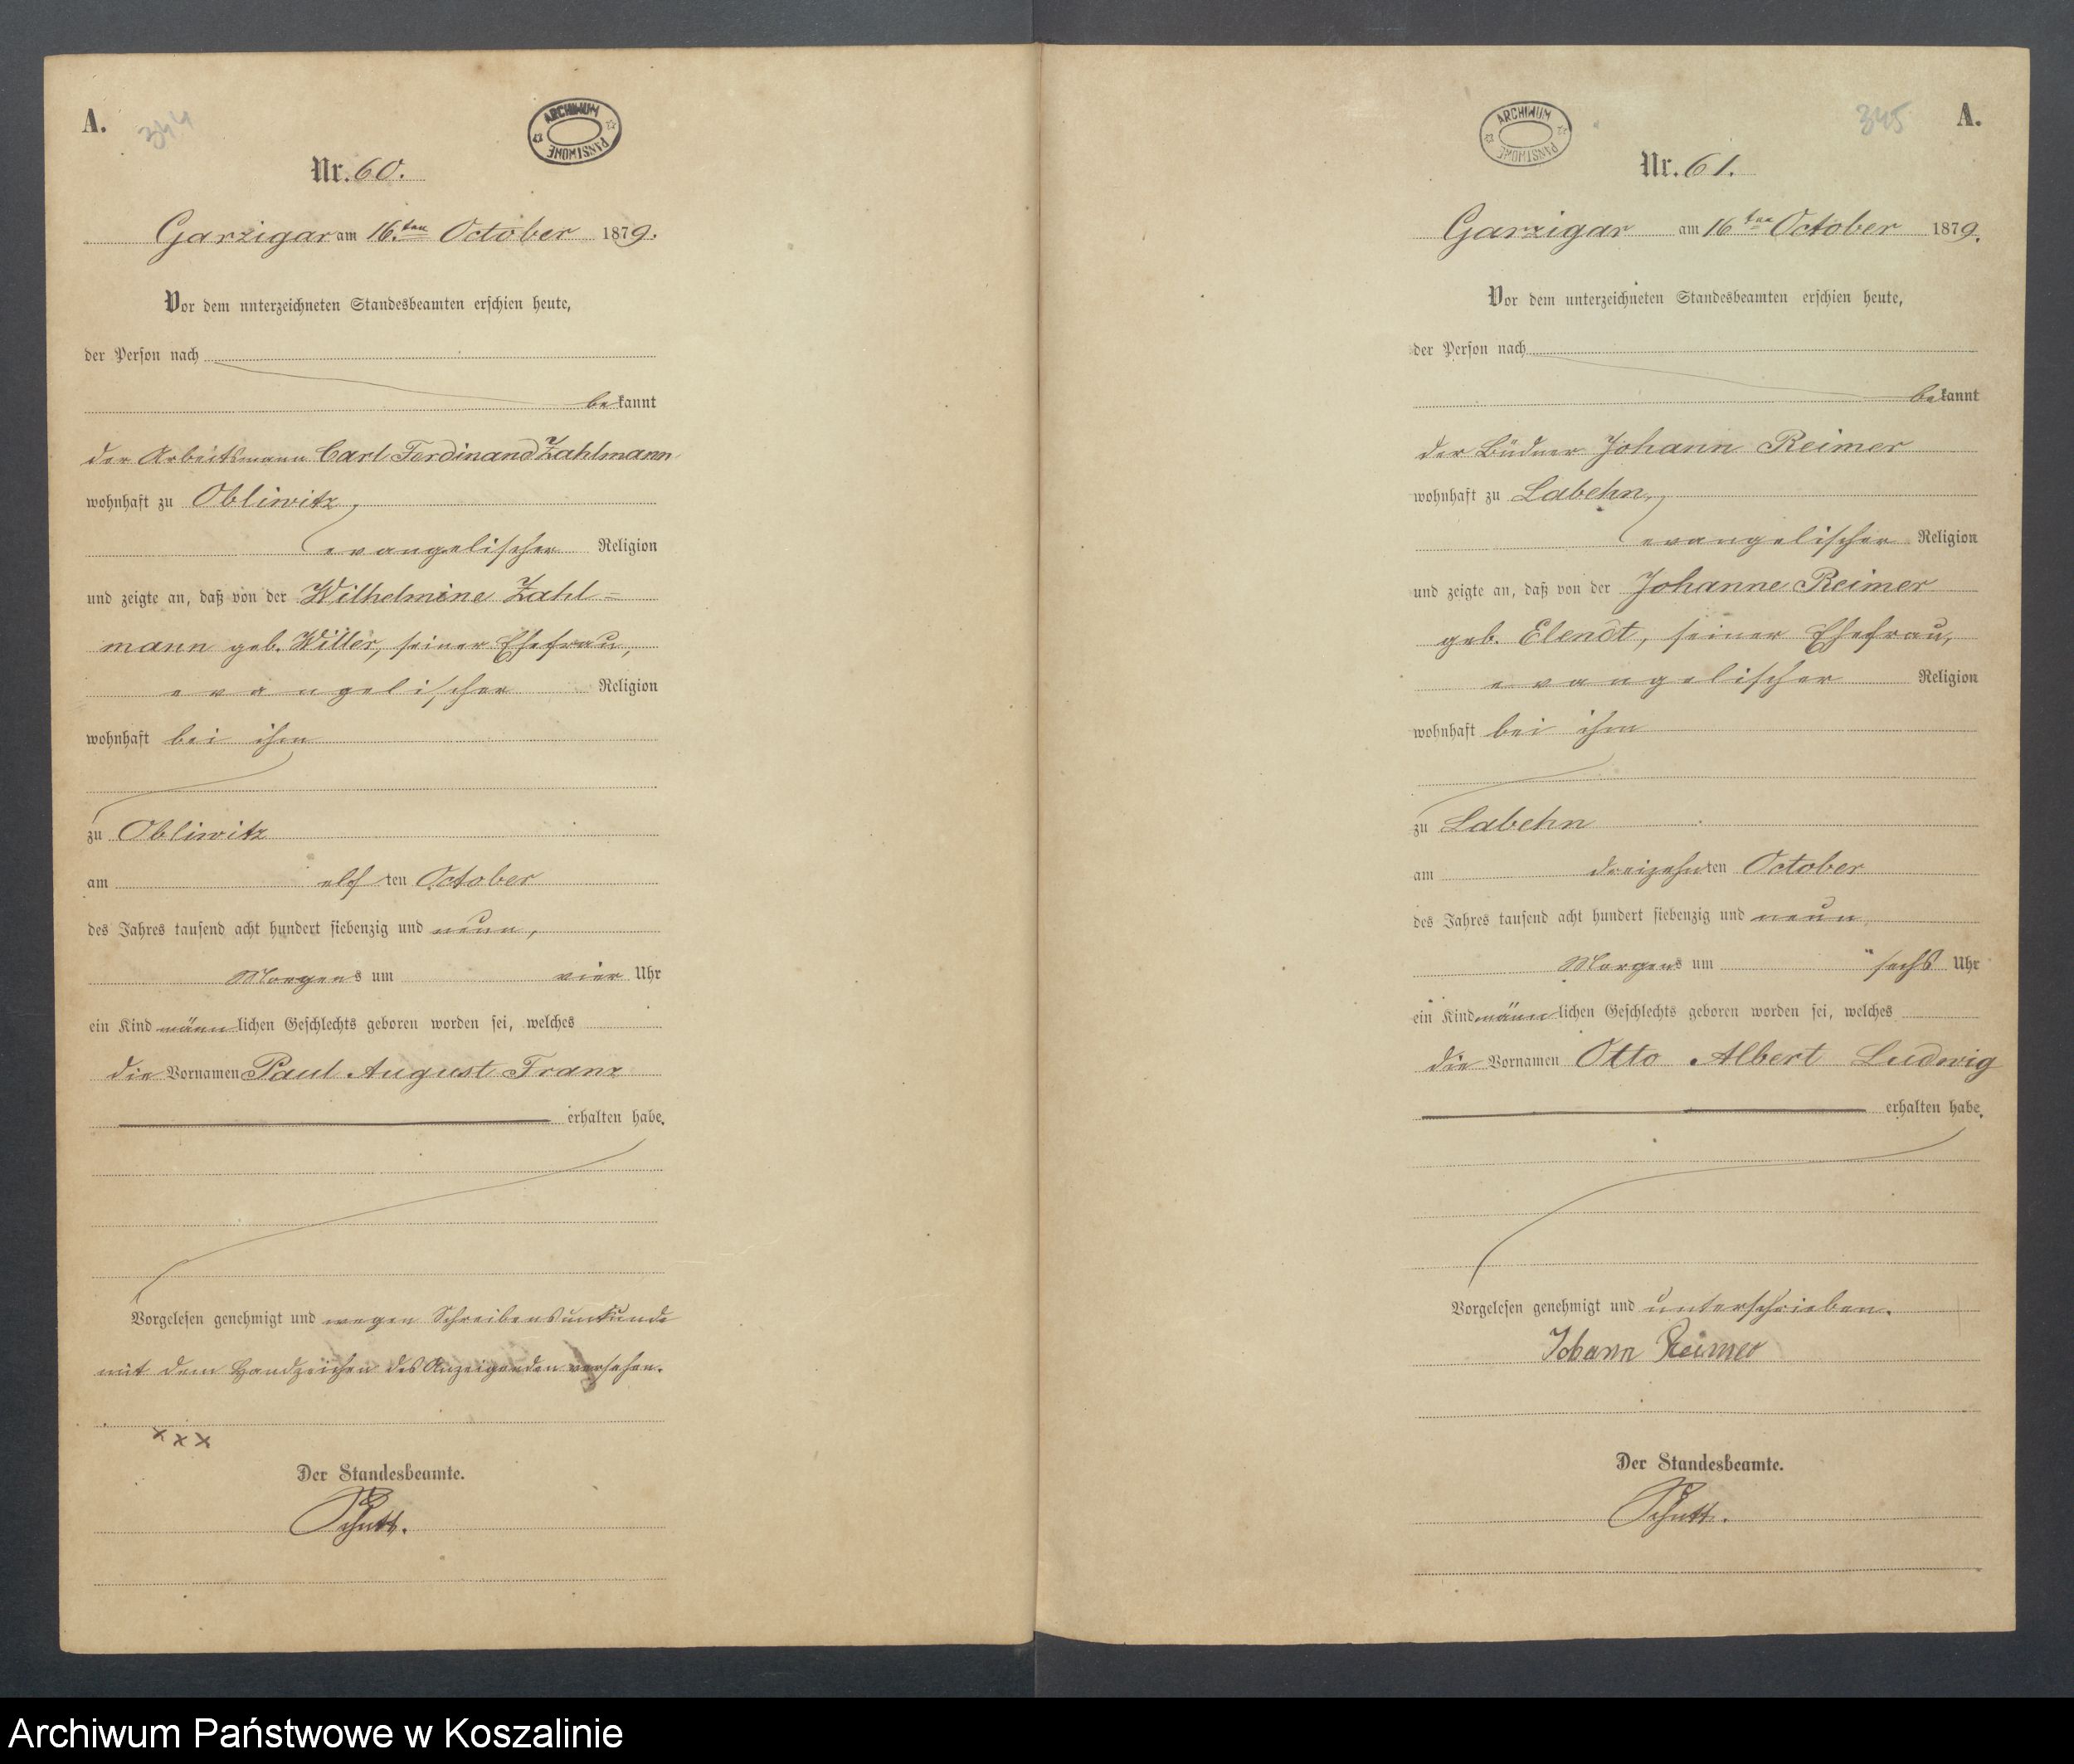 A.
344
ARCHIWUM PAŃSTWOWE
Nr. 60.
Garzigar am 16.ten October 1879.
Vor dem unterzeichneten Standesbeamten erschien heute,
der Person nach
bekannt
der Arbeitsmann Carl Ferdinand Zahlmann
wohnhaft zu Obliwitz,
evangelischer Religion
und zeigte an, daß von der Wilhelmine Zahl=
mann geb. Willer, seiner Ehefrau,
evangelischer Religion
wohnhaft bei ihm
zu Obliwitz
am elften October
des Jahres tausend acht hundert siebenzig und neun,
Morgens um vier Uhr
ein Kind männlichen Geschlechts geboren worden sei, welches
die Vornamen Paul August Franz
erhalten habe.
Vorgelesen genehmigt und wegen Schreibensunkunde
mit dem Handzeichen des Anzeigenden versehen.
x x x
Der Standesbeamte.
Schutt.
345
A.
ARCHIWUM PAŃSTWOWE
Nr. 61.
Garzigar am 16ten October 1879.
Vor dem unterzeichneten Standesbeamten erschien heute,
der Person nach
bekannt
der Büdner Johann Reimer
wohnhaft zu Labehn,
evangelischer Religion
und zeigte an, daß von der Johanne Reimer
geb. Elendt, seiner Ehefrau,
evangelischer Religion
wohnhaft bei ihm
zu Labehn
am dreizehnten October
des Jahres tausend acht hundert siebenzig und neun,
Morgens um sechs Uhr
ein Kind männlichen Geschlechts geboren worden sei, welches
die Vornamen Otto Albert Ludwig
erhalten habe.
Vorgelesen genehmigt und unterschrieben.
Johann Reimer
Der Standesbeamte.
Schutt.
Archiwum Państwowe w Koszalinie